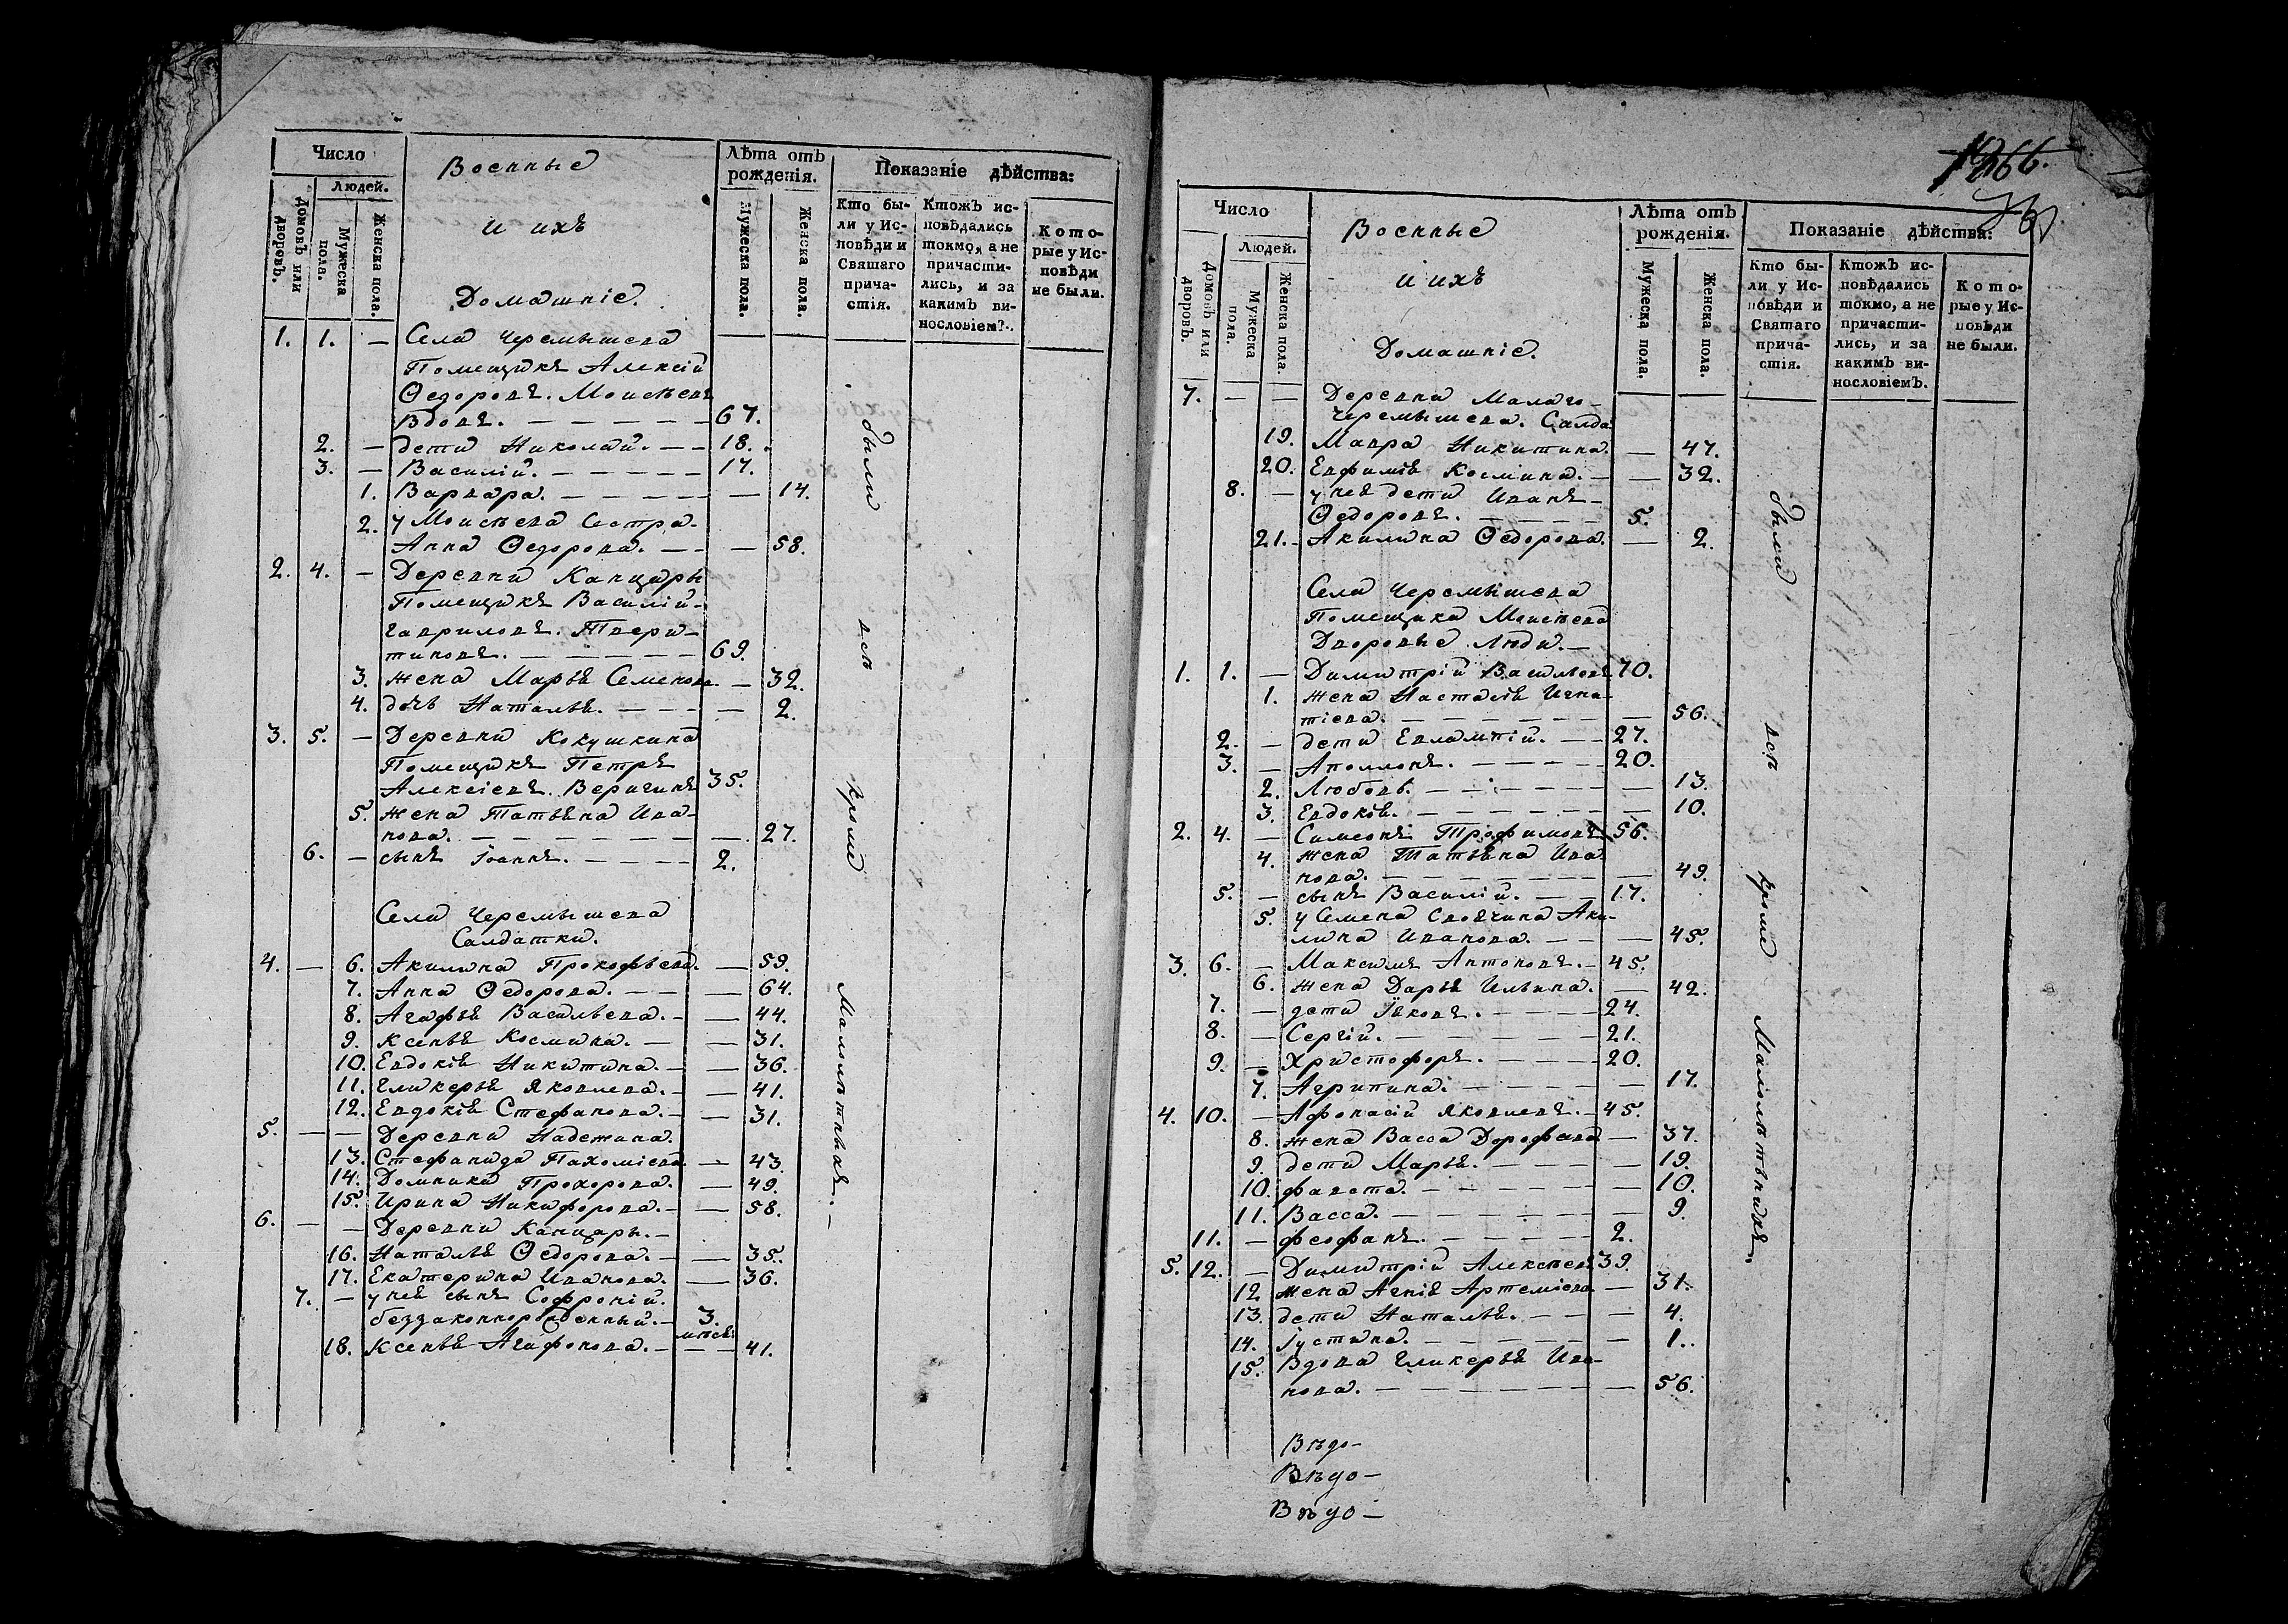 Число
Людей.
Домовъ или дворовъ.
Мужеска пола.
Женска пола.
Военные
и ихъ
Домашніе.
Лѣта отъ рожденія.
Мужеска пола.
Женска пола.
Показаніе дѣйства:
Кто были у Исповѣди и Святаго причастія.
Ктожъ исповѣдались токмо, а не причастились, и за какимъ винословіемъ?
Которые у Исповѣди не были.
1. 1. — Села Черемышева
Помещикъ Алексій
Ѳедоровъ. Моисѣевъ
Вдовъ. — 67.
2. — дети Николай. — 18.
3. — Василій. — 17.
1. Варвара. — 14.
2. у Моисѣева Сестра
Анна Ѳедорова. — 58.
2. 4. — Деревни Канцары
Помещикъ Василій
Гавриловъ. Твери-
тиновъ. — 69.
3. жена Марья Семенова — 32.
4. дочь Наталья. — 2.
3. 5. — Деревни Кокушкина
Помещикъ Петръ
Алексіевъ. Веригинъ 35.
5. жена Татьяна Ива-
нова. — 27.
6. — сынъ Іоаннъ. — 2.
Села Черемышева
Салдатки.
4. — 6. Акилина Прокофьева. — 59.
7. Анна Ѳедорова. — 64.
8. Агафья Васильева. — 44.
9. Ксенья Космина. — 31.
10. Евдокія Никитина. — 36.
11. Гликерья Яковлева. — 41.
12. Евдокія Стефанова. — 31.
5. — — Деревни Надежина.
13. Стефанида Пахоміева. — 43.
14. Домника Прохорова. — 49.
15. Ирина Никифорова. — 58.
6. — — Деревни Канцары. —
16. Наталья Ѳедорова. — 35.
17. Екатерина Иванова. — 36.
7. — у ней сынъ Софроній.
беззаконнорожденный. — 3. мѣсяц:
18. Ксенья Агафонова. — 41.
были всѣ кроме Малолѣтныхъ. —
1266.
Число
Людей.
Домовъ или дворовъ.
Мужеска пола.
Женска пола.
Военные
и ихъ
Домашніе.
Лѣта отъ рожденія.
Мужеска пола.
Женска пола.
Показаніе дѣйства:
Кто были у Исповѣди и Святаго причастія.
Ктожъ исповѣдались токмо, а не причастились, и за какимъ винословіемъ.
Которые у Исповѣди не были.
7. — — Деревни Малаго
Черемышева. Салда
19. Мавра Никитина. — 47.
20. Евфимія Космина. — 32.
8. — у нея дети Иванъ
Ѳедоровъ. — 5.
21. Акилина Ѳедорова. — 2.
Села Черемышева
Помещика Моисѣева
Дворовые Люди. —
1. 1. — Димитрій Васильевъ 70.
1. жена Настасія Игна-
тіева. — 56.
2. — дети Евлампій. — 27.
3. — Аполлонъ. — 20.
2. Любовь. — 13.
3. Евдокія. — 10.
2. 4. — Симеонъ Трофимовъ 56.
4. жена Татьяна Ива
нова. — 49.
5. — сынъ Василій. — 17.
5. у Семена Своячина Аки-
лина Иванова. — 45.
3. 6. — Максимъ Антоновъ. — 45.
6. жена Дарья Ильина. — 42.
7. — дети Іяковъ. — 24.
8. — Сергій. — 21.
9. — Христофоръ. — 20.
7. Агрипина. — 17.
4. 10. — Афонасій Яковлевъ. — 45.
8. жена Васса Дорофеева — 37.
9. дети Марья. — 19.
10. фавста. — 10.
11. Васса. — 9.
11. — феофанъ. — 2.
5. 12. — Димитрій Алексѣевъ 39.
12. жена Агнія Артеміева — 31.
13. дети Наталья. — 4.
14. Іустина. — 1.
15. Вдова Гликерья Ива-
нова. — 56.
Вѣдо—
Вѣдо—
Вѣдо—
были всѣ кроме Малолѣтныхъ.